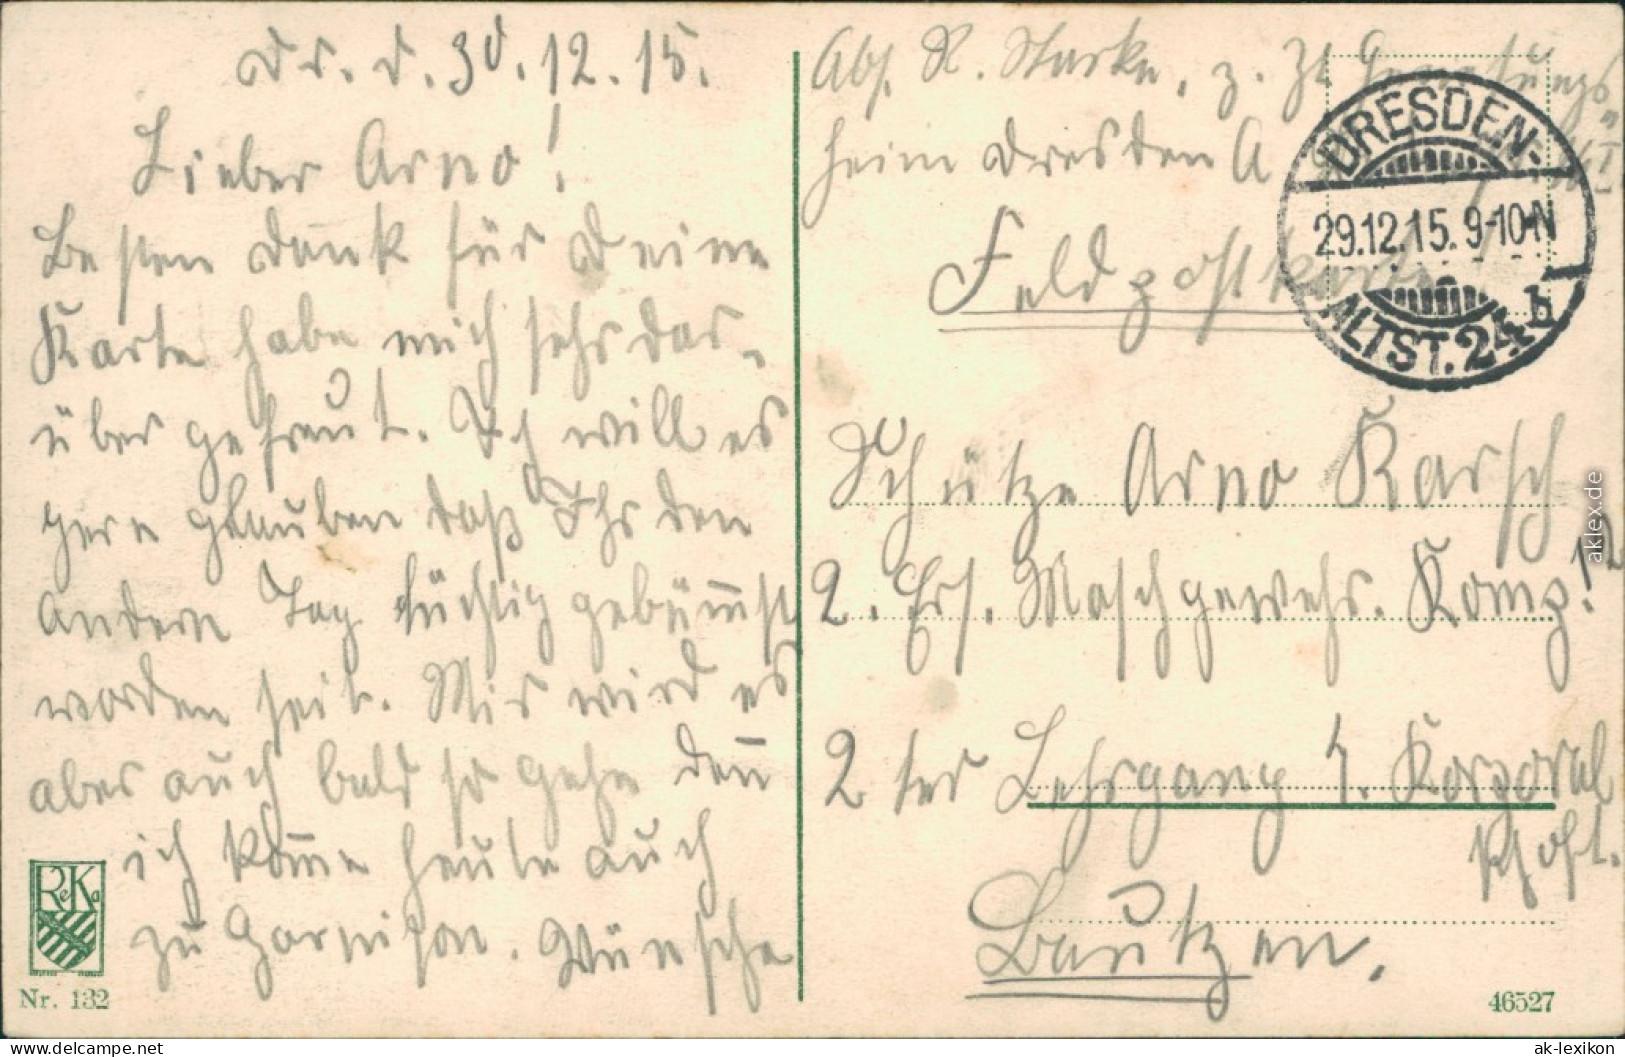 Dr. d. 30.12.15.
Lieber Arno!
Besten Dank für Deine
Karte habe mich sehr dar-
über gefreut. Ich will es
gern glauben daß Ihr den
andern Tag tüchtig gebüm̅st
worden seit. Mir wird es
aber auch bald so gehe den̅
ich kom̅e heute auch
zu Garnison. Wünsche
ReKa
Nr. 132
Abs. R. Starke, z. Zt Genesungs
heim Dresden A
Feldpostkarte
DRESDEN-
29.12.15. 9-10N
ALTST. 24 h
Schütze Arno Karsch
2. Ers. Maschgewehr. Komp. 12
2 ter Lehrgang 4. Korporal
schft.
Bautzen.
46527
aklex.de
www.delcampe.net
ak-lexikon